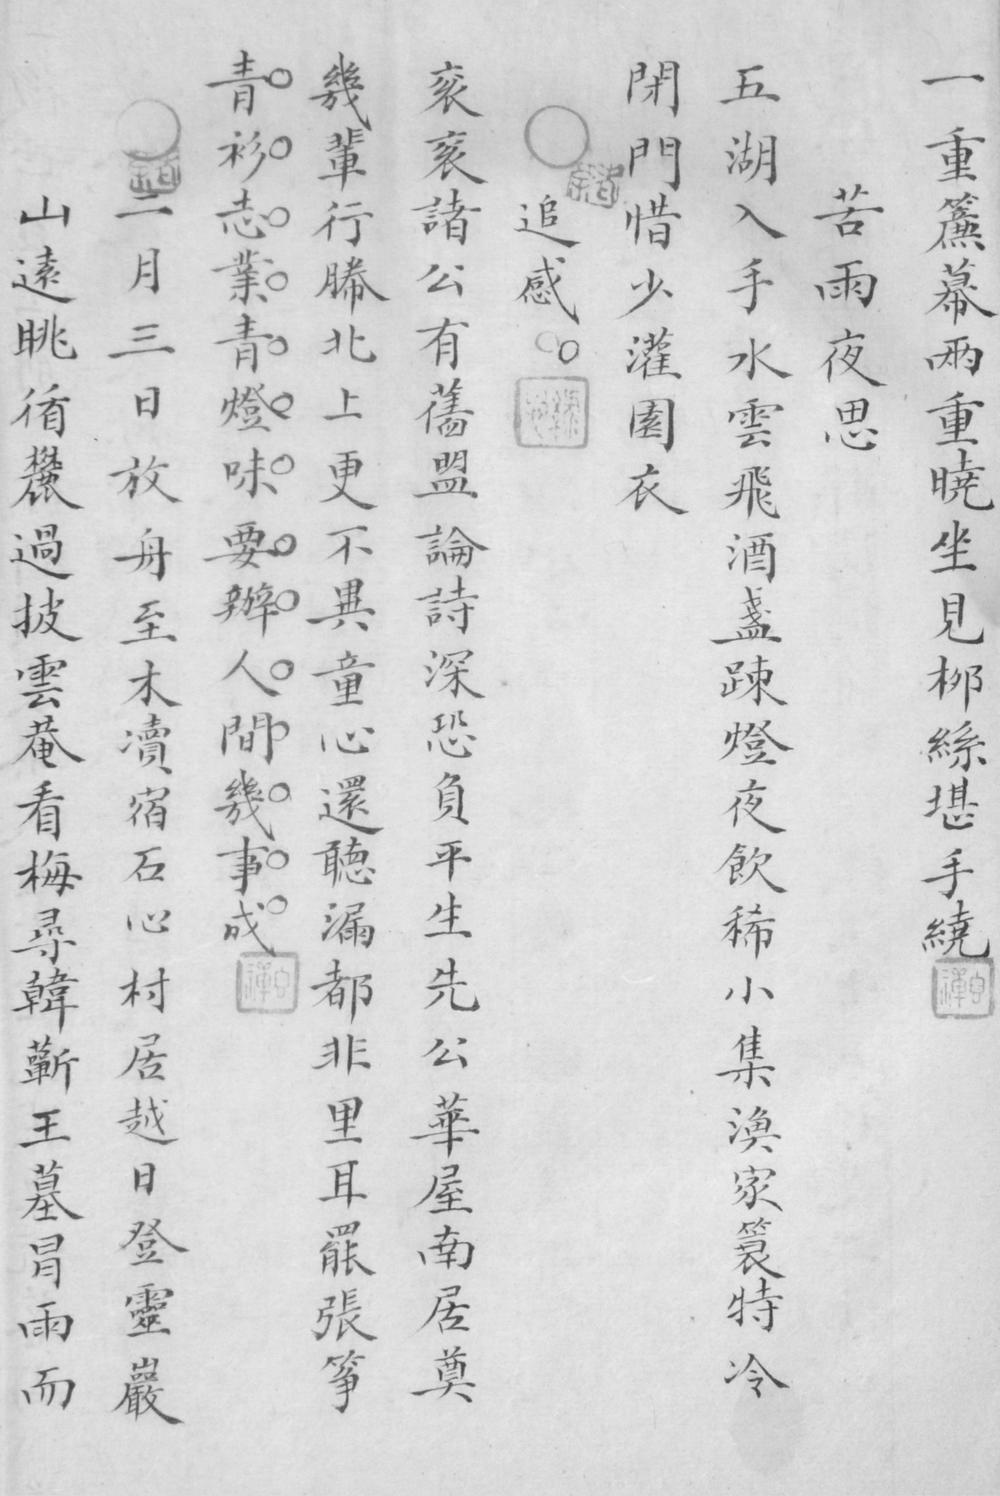 一重簾幕兩重曉坐見桞絲堪手繞
苦雨夜思
五湖入手水雲飛酒盞踈燈夜飲稀小集漁家蓑特冷
閉門惜少灌園衣
追感
衮衮諸公有舊盟論詩深恐負平生先公華屋南居奠
幾輩行騰北上更不異童心還聽漏都非里耳罷張箏
青衫志業青燈味要辦人間幾事成
二月三日放舟至木瀆宿石心村居越日登靈巖
山遠眺循麓過披雲菴看梅尋韓蘄王墓冒雨而